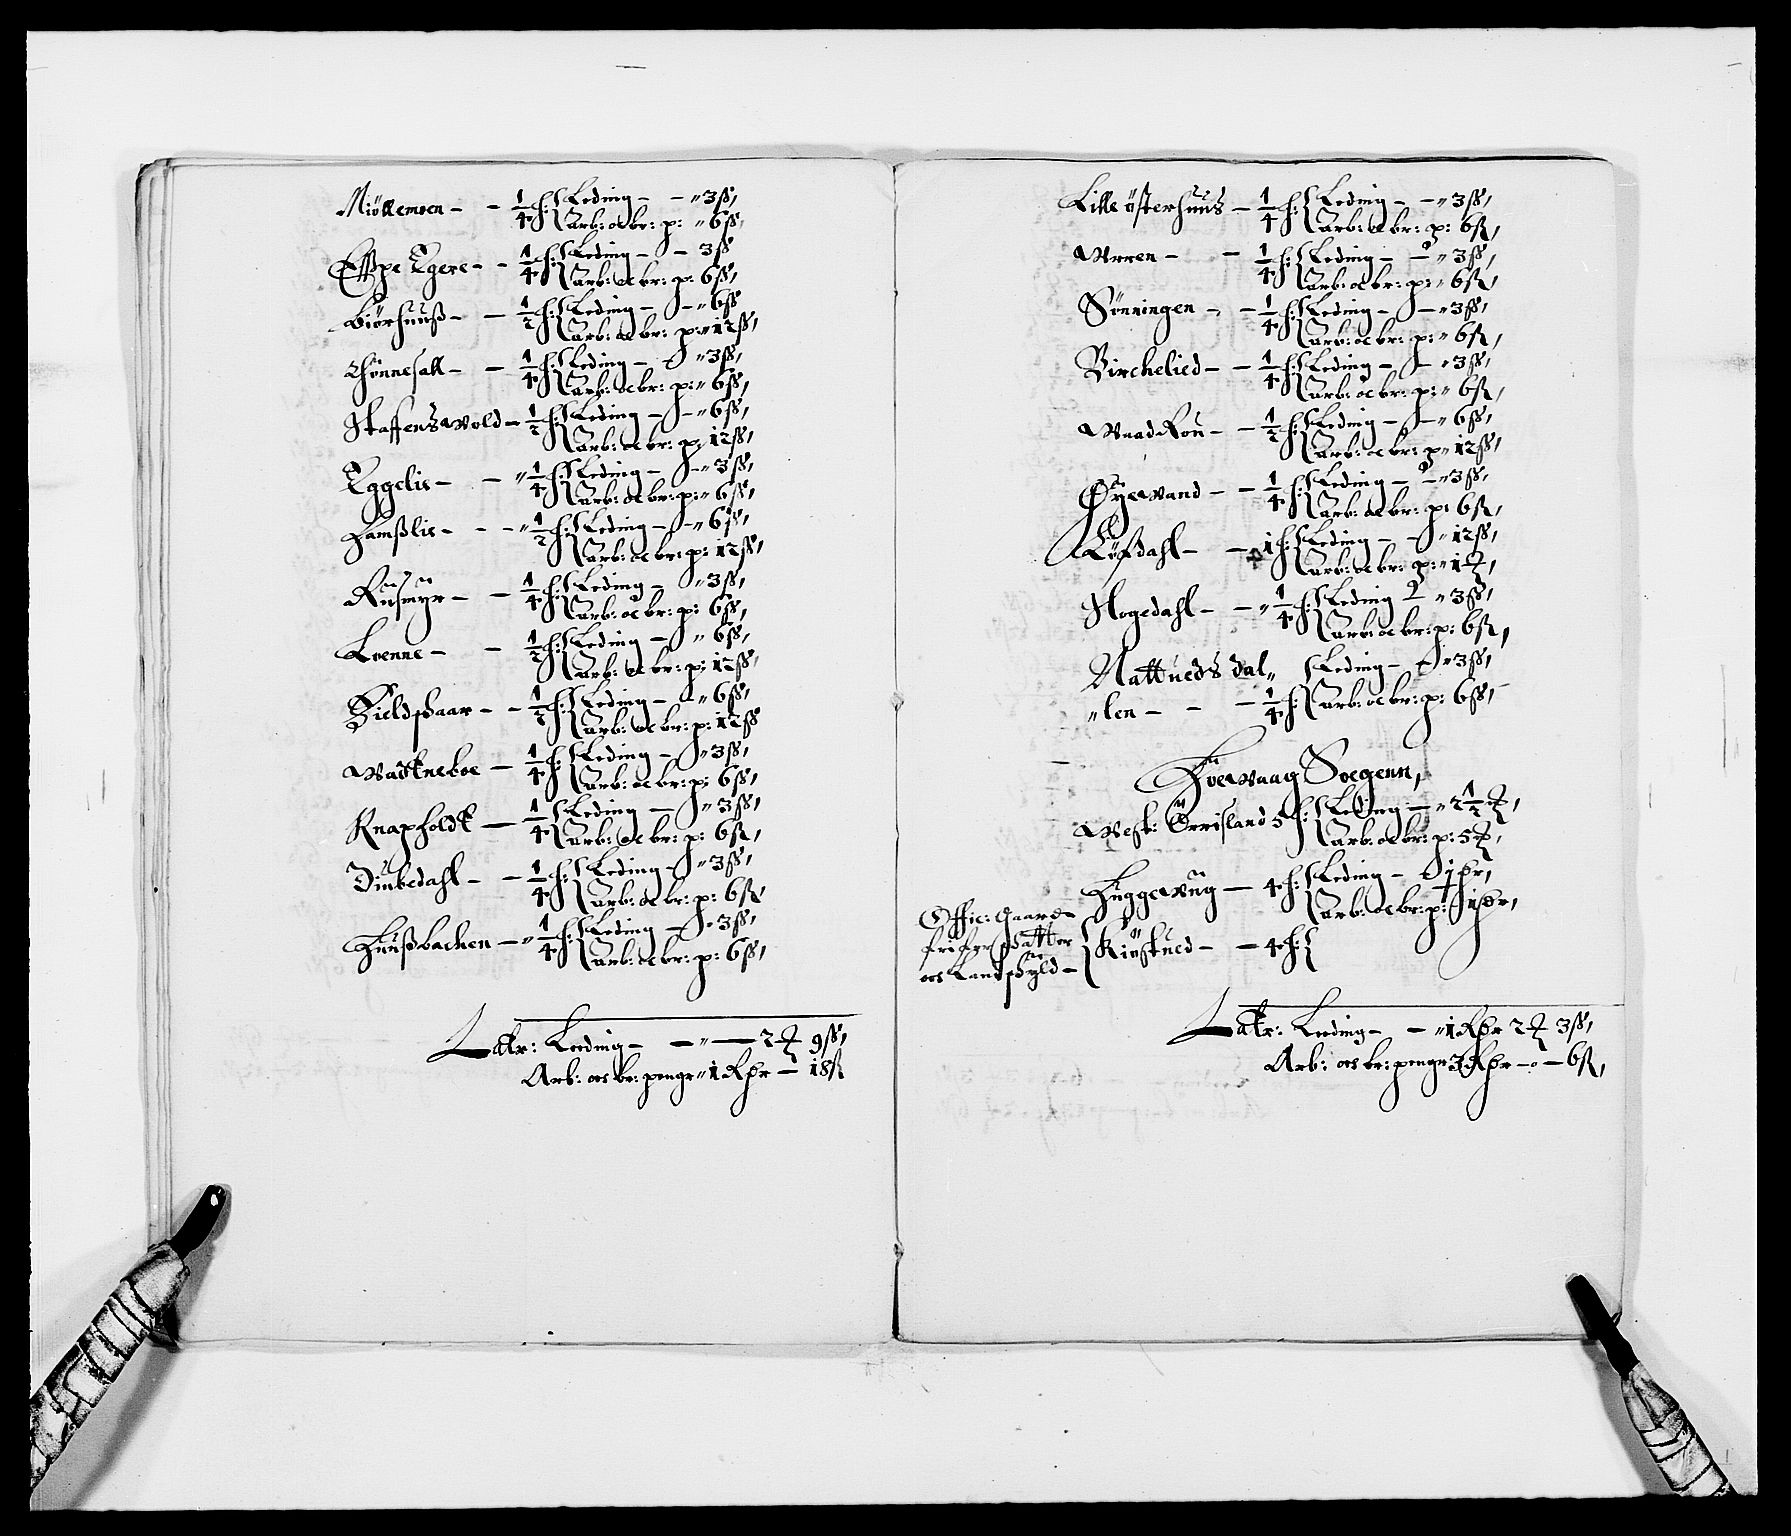 Miöllemoen - - 1/4 h: Leding - - " 3 ß,
arb: oc br: p: " 6 ß,
Esspe Egere - - 1/4 h: Leding - - 3 ß
arb: oc br: p: 6 ß,
Biörhuuß - - 1/2 h: Leding - - " 6 ß
arb: oc br: p: " 12 ß,
Thönnesall - - 1/4 h: Leding - - " 3 ß,
arb: oc br: p: " 6 ß,
Staffens wold - 1/2 h: Leding - - " 6 ß,
arb: oc br: p: 12 ß,
Eggelie - - " 1/4 h: Leding - - " 3 ß,
arb: oc br: p: " 6 ß,
Hamßlie - - - " 1/2 h: Leding - - " 6 ß,
arb: oc br: p: 12 ß,
Rusmyr - - 1/4 h: Leding - " 3 ß,
arb: oc br: p: 6 ß,
Loenne - - 1/2 h: Leding - " 6 ß,
arb: oc br: p: 12 ß,
Kieldsaar - - 1/2 h: Leding - - " 6 ß,
arb: oc br: p: 12 ß
Watneboe - 1/4 h: Leding - " 3 ß,
arb: oc br: p: 6 ß,
Knapholdt - 1/4 h: Leding - " 3 ß,
arb: oc br: p: 6 ß,
Dinbedahl - - 1/4 h: Leding - " 3 ß,
arb: oc br: p: 6 ß,
Huußbachen - " 1/4 h: Leding - " 3 ß,
arb: oc br: p: 6 ß,
Latr: Leding - - " - 2 # 9 ß,
Arb: och br: penge " 1 Rdr - 18 ß
Lille Österhuus - 1/4 h: Leding - - " 3 ß,
arb: oc br: p: 6 ß,
Wrren - - 1/4 h: Leding - - " 3 ß,
arb: oc br: p: " 6 ß,
Sönningen - - 1/4 h: Leding - - " 3 ß,
arb: oc br: p: " 6 ß,
Birchelied - - 1/4 h: Leding - - " 3 ß,
arb: oc br: p: " 6 ß,
Waad Rou - - 1/2 h: Leding - - " 6 ß,
arb: oc br: p: " 12 ß,
Øyewand - - 1/4 h: Leding - - " 3 ß,
arb: oc br: p: 6 ß,
Löfdahl - - 1 h: Leding - - " 12 ß,
arb: oc br: p: " 1 #,
Hogedahl - - " 1/4 h: Leding " 3 ß,
arb: oc br: p: 6 ß,
Nattueds dal" Leding - " 3 ß,
"len - - - 1/4 h: arb: oc br: p: 6 ß,
Höewaag Soegenn,
West: Örrisland 5 h: Leding - " 2 1/2 #,
arb: oc br: p: 5 #,
Huggewug - 4 h: Leding - 1 dr,
arb: oc br: p: 1 dr,
Offic: Gaard -
fri for schatter Kiöstued - - 4 h:
och Landschyld -
Latr: Leding - - " 1 Rdr 2 # 3 ß,
Arb: och br: penge 3 Rdr - " - 6 ß,